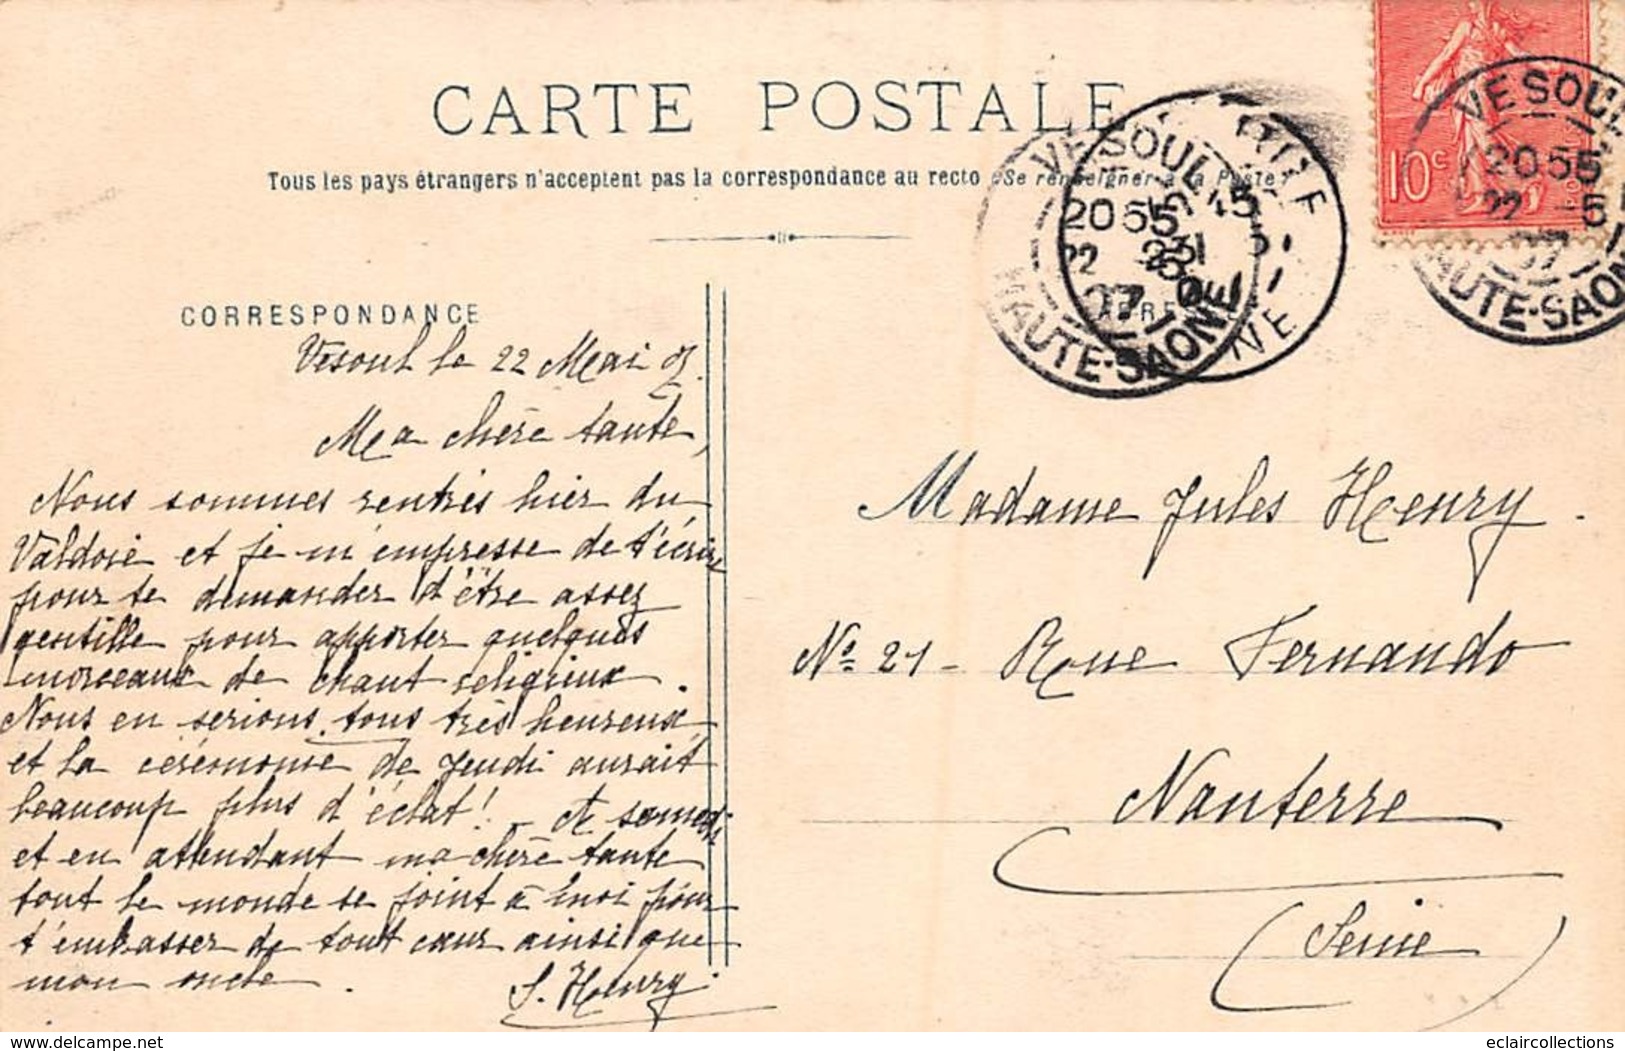 CARTE POSTALE
Tous les pays étrangers n'acceptent pas la correspondance au recto (Se renseigner à la Poste)
CORRESPONDANCE
Vesoul le 22 Mai 07.
Ma chère tante,
Nous sommes rentrés hier du
Valdoie et je m'empresse de t'écrire
pour te demander d'être assez
gentille pour apporter quelques
morceaux de chant religieux.
Nous en serions tous très heureux
et la cérémonie de Jeudi aurait
beaucoup plus d'éclat! - A samedi
et en attendant ma chère tante
tout le monde se joint à moi pour
t'embrasser de tout cœur ainsi que
mon oncle.
S. Henry.
Madame Jules Henry.
No 21 - Rue Fernando
Nanterre
(Seine)
10c
VESOUL
20 55
22 -5
07
HAUTE-SAONE
VESOUL
20 55
22
07
HAUTE-SAONE
delcampe.net
eclaircollections